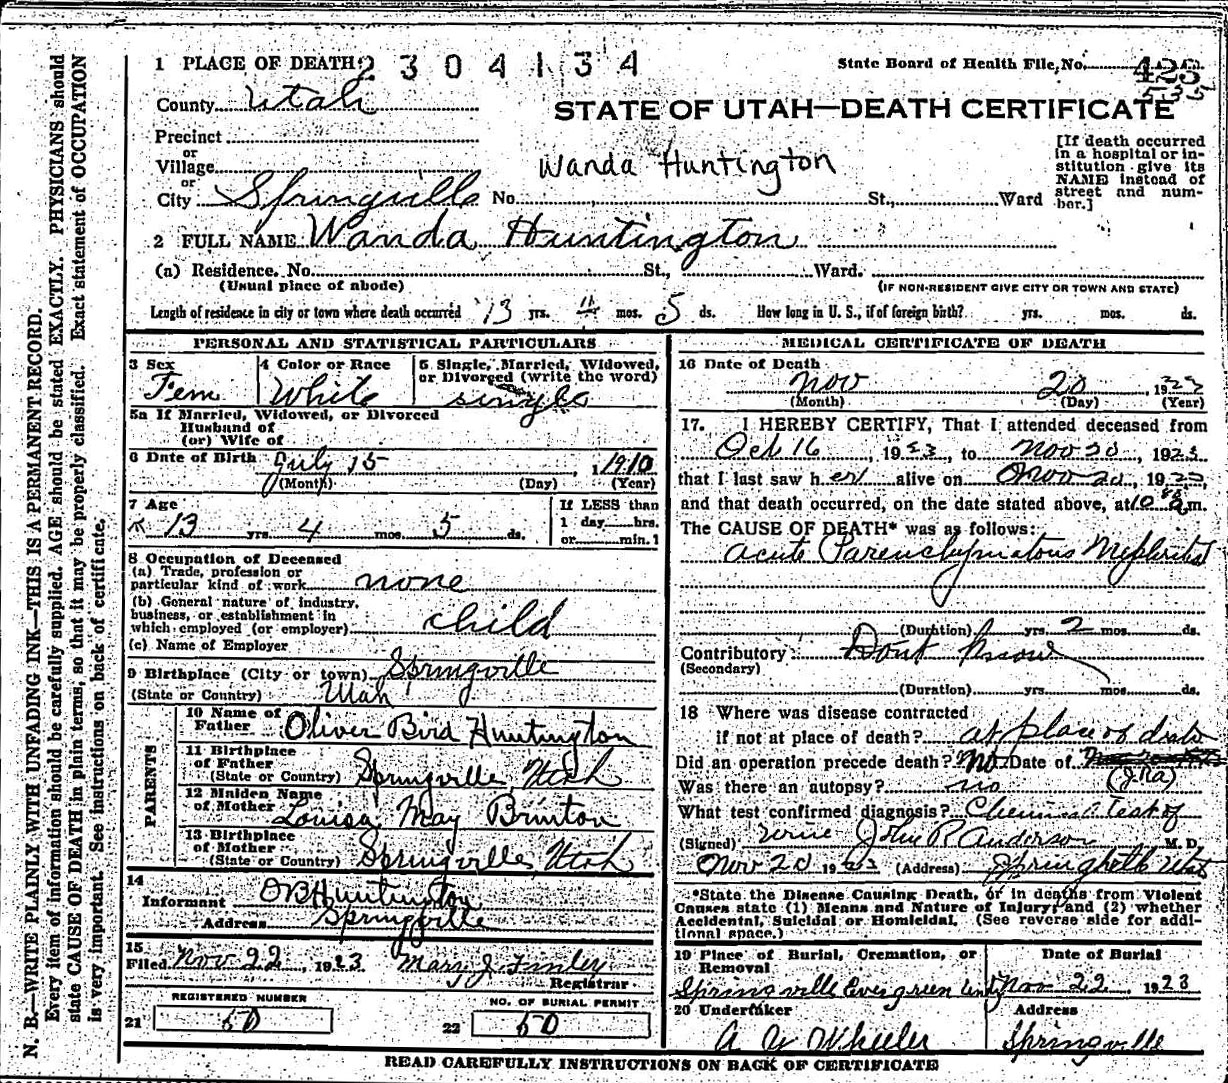 1 PLACE OF DEATH 2304134
State Board of Health File, No. 423
535
County Utah
STATE OF UTAH—DEATH CERTIFICATE
Precinct
or
Village
or
City Springville No. St., Ward
Wanda Huntington
[If death occurred in a hospital or in-
stitution give its
NAME instead of
street and num-
ber.]
2 FULL NAME Wanda Huntington
(a) Residence. No. St., Ward.
(Usual place of abode) (IF NON-RESIDENT GIVE CITY OR TOWN AND STATE)
Length of residence in city or town where death occurred 13 yrs. 4 mos. 5 ds. How long in U. S., if of foreign birth? yrs. mos. ds.
PERSONAL AND STATISTICAL PARTICULARS
3 Sex
Fem
4 Color or Race
White
5 Single, Married, Widowed,
or Divorced (write the word)
single
5a If Married, Widowed, or Divorced
Husband of
(or) Wife of
6 Date of Birth July 15, 1910
(Month) (Day) (Year)
7 Age
13 yrs. 4 mos. 5 ds.
If LESS than
1 day hrs.
or min.?
8 Occupation of Deceased
(a) Trade, profession or
particular kind of work none
(b) General nature of industry,
business, or establishment in
which employed (or employer) child
(c) Name of Employer
9 Birthplace (City or town) Springville
(State or Country) Utah
PARENTS
10 Name of
Father Oliver Bird Huntington
11 Birthplace
of Father
(State or Country) Springville, Utah
12 Maiden Name
of Mother Louisa May Brinton
13 Birthplace
of Mother
(State or Country) Springville, Utah
14
Informant OB Huntington
Address Springville
15
Filed Nov 22, 1923 Mary J. Finley
Registrar
REGISTERED NUMBER
21 50
NO. OF BURIAL PERMIT
22 50
MEDICAL CERTIFICATE OF DEATH
16 Date of Death
Nov 20 1923
(Month) (Day) (Year)
17. I HEREBY CERTIFY, That I attended deceased from
Oct 16, 1923, to Nov 20, 1923
that I last saw her alive on Nov 20, 1923,
and that death occurred, on the date stated above, at 10 a.m.
The CAUSE OF DEATH* was as follows:
Acute Parenchymatous Nephritis
(Duration) yrs. 2 mos. ds.
Contributory Dont Know
(Secondary)
(Duration) yrs. mos. ds.
18 Where was disease contracted
if not at place of death? at place of death
Did an operation precede death? No. Date of
Was there an autopsy? no (JRA)
What test confirmed diagnosis? Chemical test of
urine
(Signed) John R Anderson M. D.
Nov 20 1923 (Address) Springville Utah
*State the Disease Causing Death, or in deaths from Violent
Causes state (1) Means and Nature of Injury; and (2) whether
Accidental, Suicidal or Homicidal. (See reverse side for addi-
tional space.)
19 Place of Burial, Cremation, or
Removal
Springville Evergreen
Date of Burial
Nov 22, 1923
20 Undertaker
A W Wheeler
Address
Springville
READ CAREFULLY INSTRUCTIONS ON BACK OF CERTIFICATE
N. B.—WRITE PLAINLY WITH UNFADING INK—THIS IS A PERMANENT RECORD.
Every item of information should be carefully supplied. AGE should be stated EXACTLY. PHYSICIANS should
state CAUSE OF DEATH in plain terms, so that it may be properly classified. Exact statement of OCCUPATION
is very important. See instructions on back of certificate.